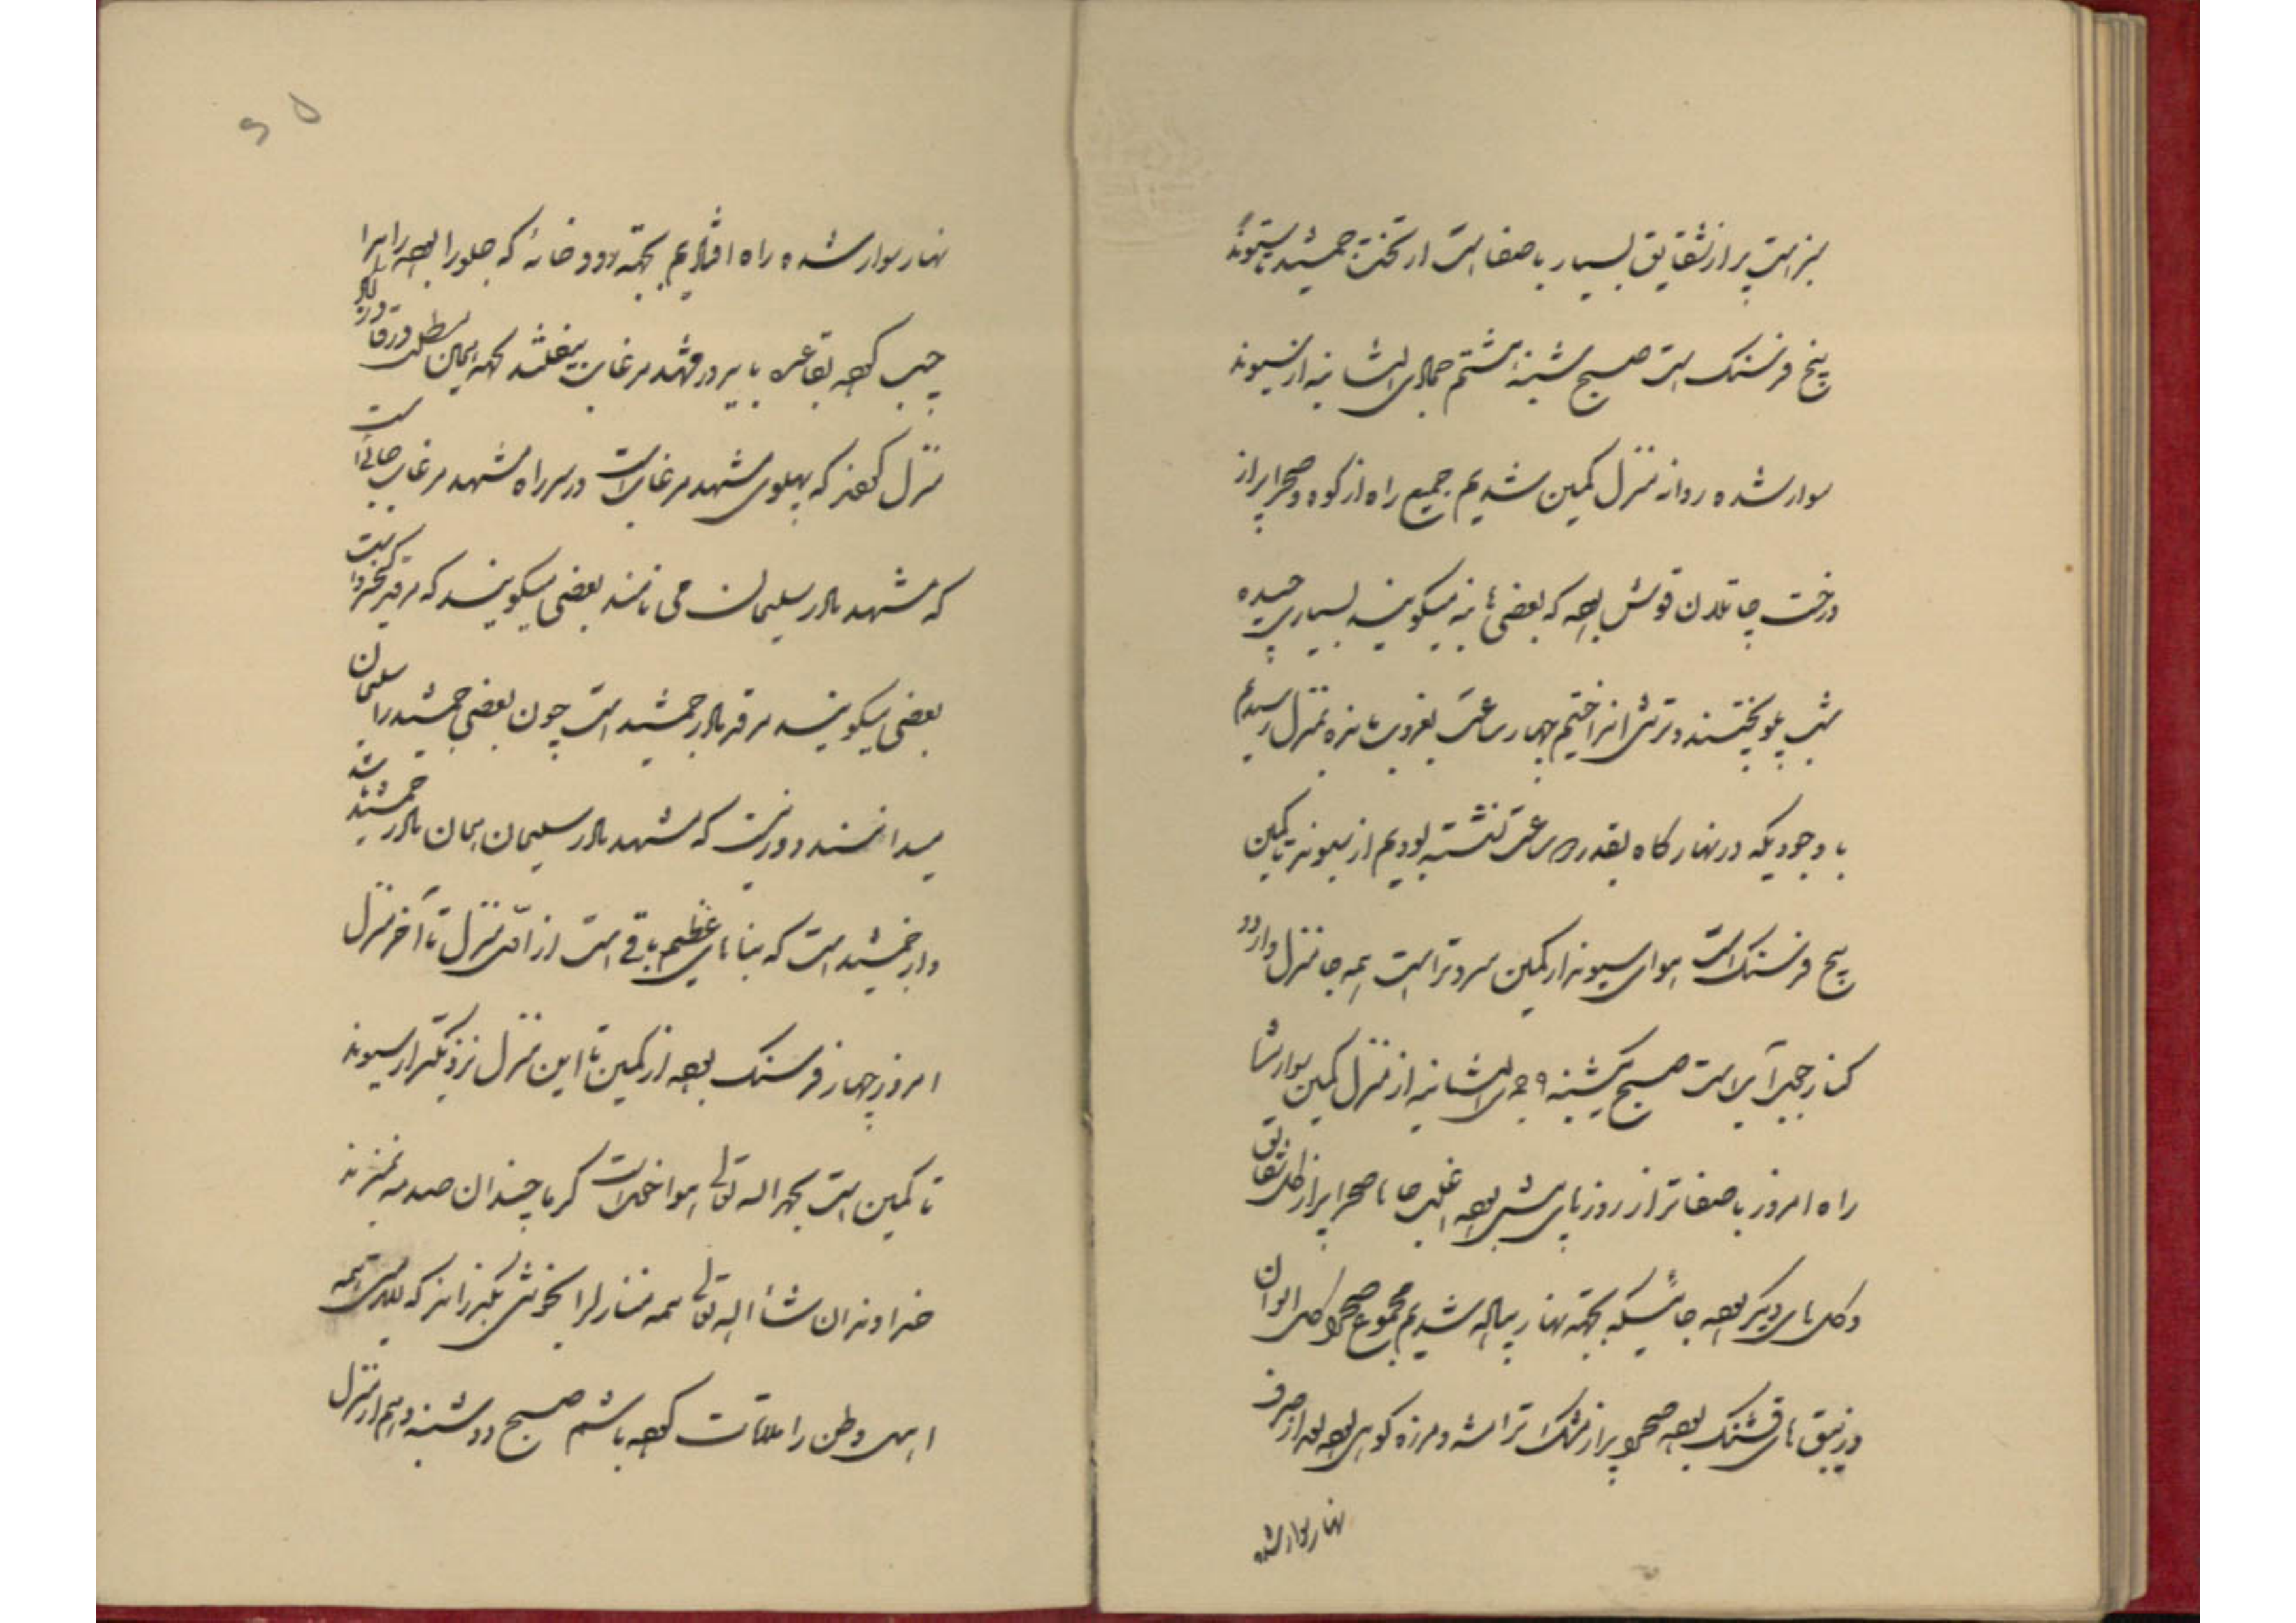 سبز است پر از شقایق بسیار با صفا است از تخت جمشید تا سیوند
پنج فرسنک است صبح شنبهٔ هشتم جمادی الثانیه از سیوند
سوار شده روانه منزل کمین شدیم جمیع راه از کوه و صحرا پر از
درخت چاتلان قوش بوده که بعضی بنه میکویند بسیاری چیده
شب پلو پختند و ترشی انداختیم چهار ساعت بغروب مانده بمنزل رسیدیم
با وجودیکه در نهار کاه بقدر دو ساعت نشسته بودیم از سیوند تا کمین
پنج فرسنک است هوای سیوند از کمین سردتر است همه جا منزل و اردو
کنار صبح یکشنبه ۹ جمادی الثانیه از منزل کمین سوار شده
راه امروز با صفاتر از روزهای پیش بوده اغلب جاها صحرا پر از کل شقایق
و کل های دیکر بوده جائیکه بجهة نهار پیاده شدیم مجموع صحرا کل الوان
و زنبق های قشنک بوده صحرا پر از و مرزه کوهی بوده بعد از صرف
نهار سوار شده
۶۵
نهار سوار شده راه افتادیم بجهة رودخانهٔ که جلو راه بوده راه را
چپ کرده بقاعده باید در مشهد مرغاب بیفتند بجهة
منزل کردند که پهلوی مشهد مرغاب است در سر راه مشهد مرغاب جائی است
که مشهد مادر سلیمان می نامند بعضی میکویند که مرقد کیخسرو است
بعضی میکویند مرقد مادر جمشید است چون بعضی جمشید را سلیمان
میدانستند دور نیست که مشهد مادر سلیمان همان مادر جمشید باشد
است که بنا های عظیم باقی است از اول منزل تا آخر منزل
امروز چهار فرسنک بوده از کمین تا این منزل نزدیکتر از سیوند
تا کمین است بحمد اله تعالی هوا خنک است کرما چندان صدمه نمیزند
خداوند ان شاء اله تعالی همه منازل را بخوشی بکذراند که بسلامتی همه
اهل وطن را ملاقات کرده باشم صبح دوشنبه دهم از منزل